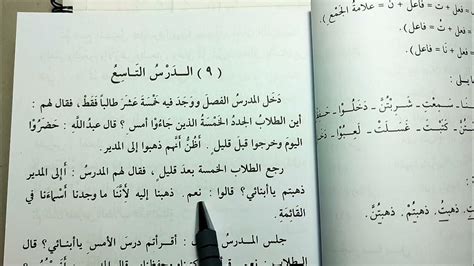 (٩) الـدَرْسُ التَاسِعُ
دَخَل المدرسُ الفصلَ ووَجَد فيه خَمْسَةَ عَشَرَ طالباً فَقَطْ، فقال لهم :
أين الطلابُ الجددُ الخمسةُ الذين جَاءُوا أمس ؟ قال عبدُالله : حَضَرُوْا
اليومَ وخرجوا قبلَ قليلٍ. أَظُنُّ أَنَّهم ذهبوا إلى المدير.
رجع الطلاب الخمسة بعدَ قليلٍ، فقال لهم المدرسُ : أَإلى المدير
ذهبتم ياأبنائي؟ قالوا : نعم. ذهبنا إليه لأَنَّنا ما وجدنا أَسْمَاءَنا في
القَائِمَةِ.
جلس المدرسُ وقال : أقرأتم درسَ الأمسِ ياأبنائي؟ قال
الطلاب : نعم
= فعل + تُ = فاعل
+ تن = فاعل + ن = (عَلامَةُ الجَمْعِ).
+ نَا = فاعل).
سَمِعَتْ - شَرِبْتُنَّ - دَخَلُـوْا
كَتَبْتَ - غَسَلَتْ - لَعِبُوْا
ذهبتَ، ذهبتِ، ذهبتم، ذهبتُنَّ.